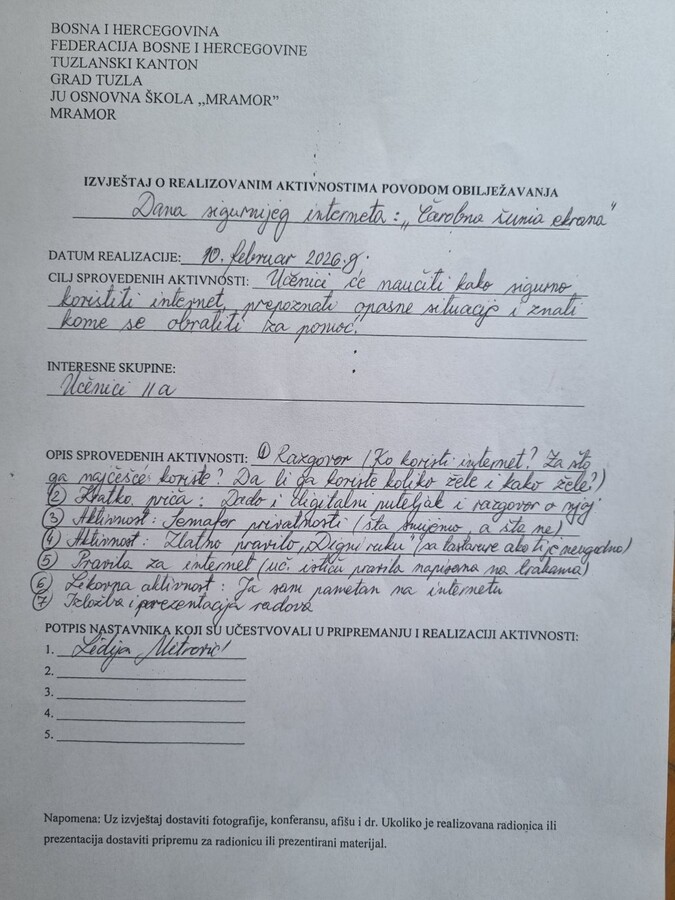 BOSNA I HERCEGOVINA
FEDERACIJA BOSNE I HERCEGOVINE
TUZLANSKI KANTON
GRAD TUZLA
JU OSNOVNA ŠKOLA „MRAMOR”
MRAMOR
IZVJEŠTAJ O REALIZOVANIM AKTIVNOSTIMA POVODOM OBILJEŽAVANJA
Dana sigurnijeg interneta: „Čarobna šuma ekrana”
DATUM REALIZACIJE: 10. februar 2026.g.
CILJ SPROVEDENIH AKTIVNOSTI: Učenici će naučiti kako sigurno
koristiti internet, prepoznati opasne situacije i znati
kome se obratiti za pomoć.
INTERESNE SKUPINE:
Učenici IIa
OPIS SPROVEDENIH AKTIVNOSTI: 1 Razgovor (Ko koristi internet? Za što
ga najčešće koriste? Da li ga koriste koliko žele i kako žele?)
2 Kratka priča: Dado i digitalni puteljak i razgovor o njoj
3 Aktivnost: Semafor privatnosti (šta smijemo, a šta ne)
4 Aktivnost: Zlatno pravilo „Digni ruku” (sa ako ti je neugodno)
5 Pravila za internet (uč. ističu pravila napisana na trakama)
6 Likovna aktivnost: Ja sam pametan na internetu
7 Izložba i prezentacija radova
POTPIS NASTAVNIKA KOJI SU UČESTVOVALI U PRIPREMANJU I REALIZACIJI AKTIVNOSTI:
1. Lidija Mitrović
2.
3.
4.
5.
Napomena: Uz izvještaj dostaviti fotografije, konferansu, afišu i dr. Ukoliko je realizovana radionica ili
prezentacija dostaviti pripremu za radionicu ili prezentirani materijal.